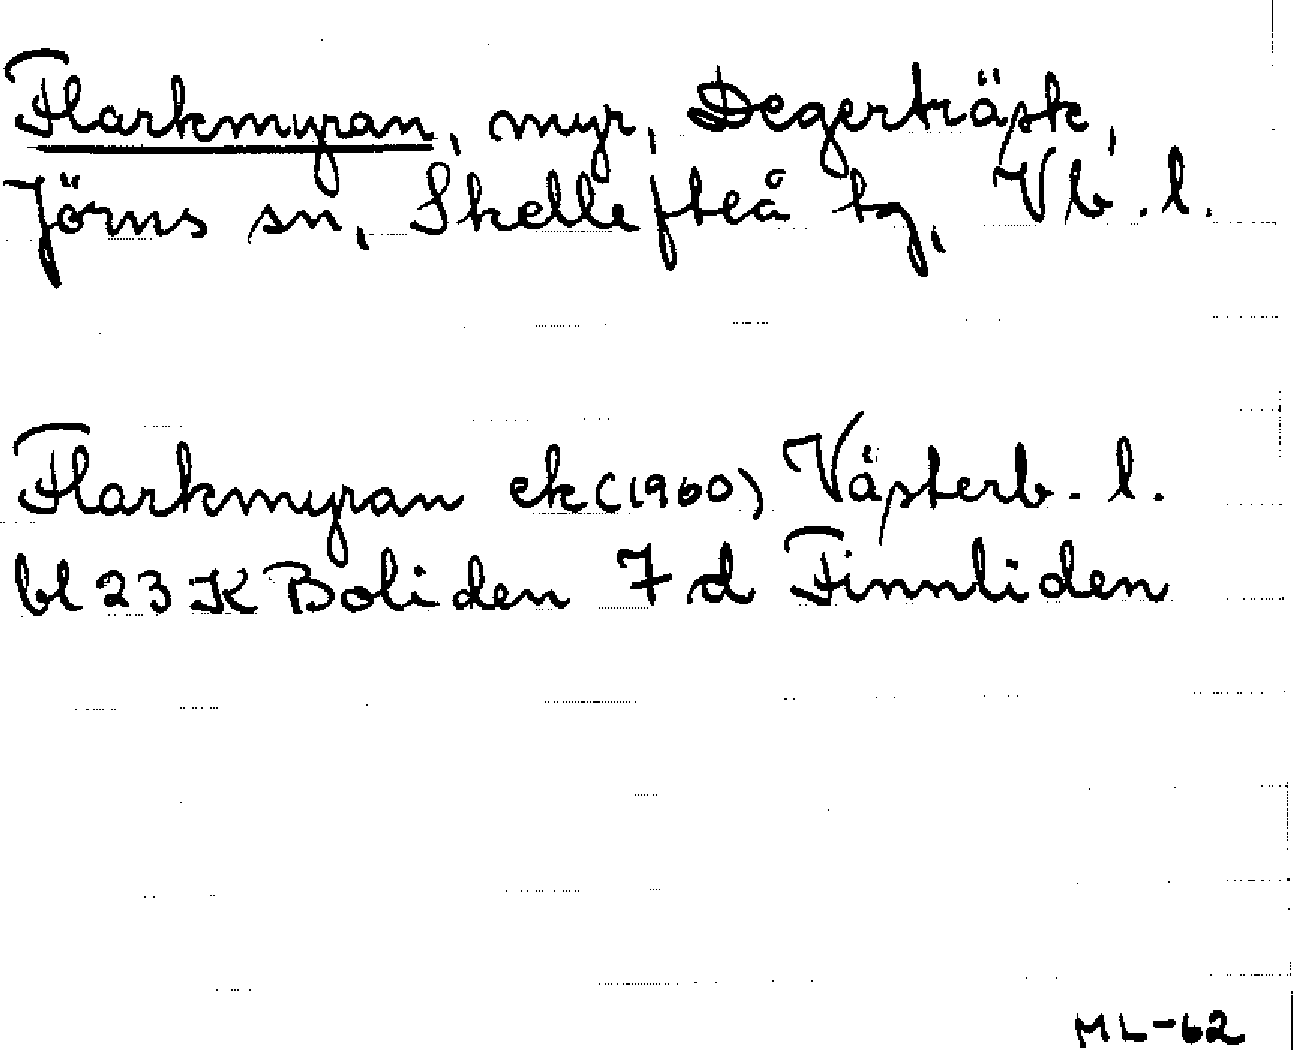 Flarkmyran, myr, Degerträsk,
Jörns sn, Skellefteå tg, Vb. l.
Flarkmyran ek (1960) Västerb. l.
bl 23 K Boliden 7 d Finnliden
ML-62